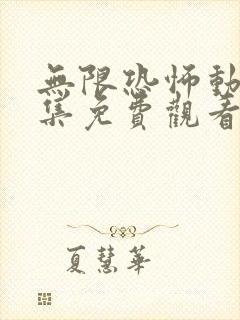 無限恐怖動
集免費觀看
夏慧華